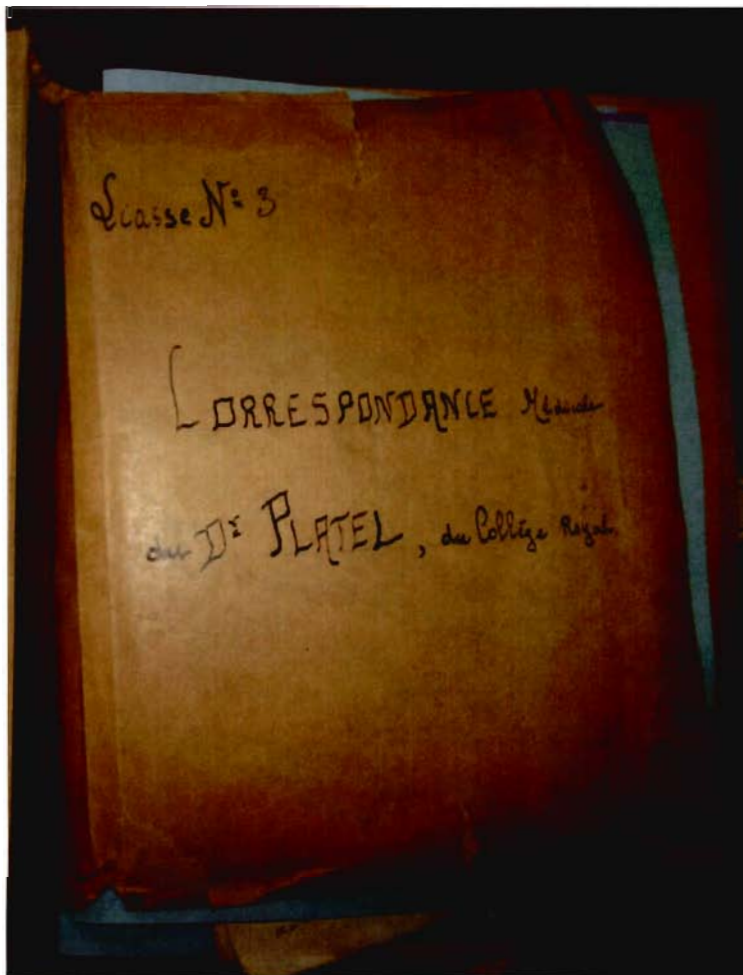 Liasse N° 3
CORRESPONDANCE Médicale
du Dr PLATEL, du Collège Royal.